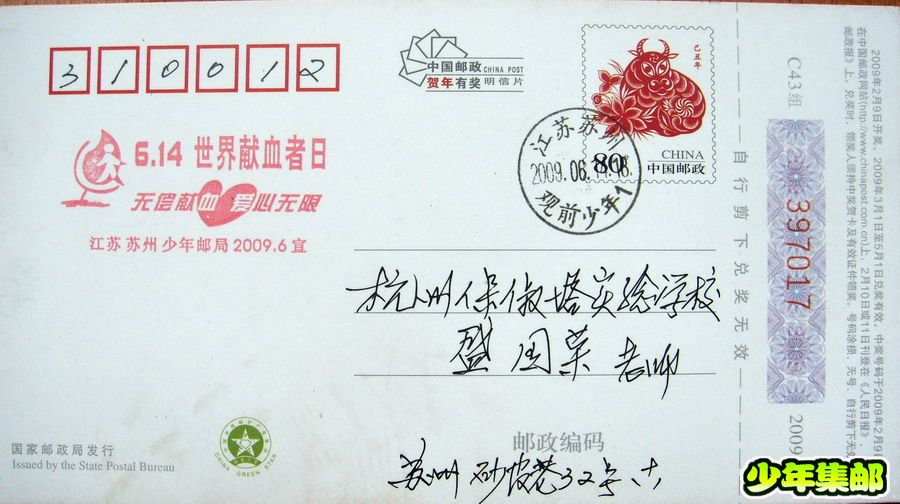 310012
中国邮政 CHINA POST
贺年有奖 明信片
己丑年
CHINA
中国邮政
80
江苏苏州
2009.06.14.18
观前少年1
6.14 世界献血者日
无偿献血 爱心无限
江苏 苏州 少年邮局 2009.6 宣
杭州保俶塔实验学校
盛国荣 老师
邮政编码
苏州 砂皮巷32号 六
国家邮政局发行
Issued by the State Postal Bureau
CHINA GREEN STAR
自行剪下兑奖无效
C43组
397017
2009
2009年2月9日开奖,2009年3月1日至5月1日兑奖有效。中奖号码于2009年2月9日
在中国邮政网站(http://www.chinapost.com.cn)上,2月10日或11日刊登在《人民日报》、
邮政报》上,兑奖时,领奖人须持中奖贺卡及有效证件领奖,号码涂损、无号、自行剪下无效
少年集邮